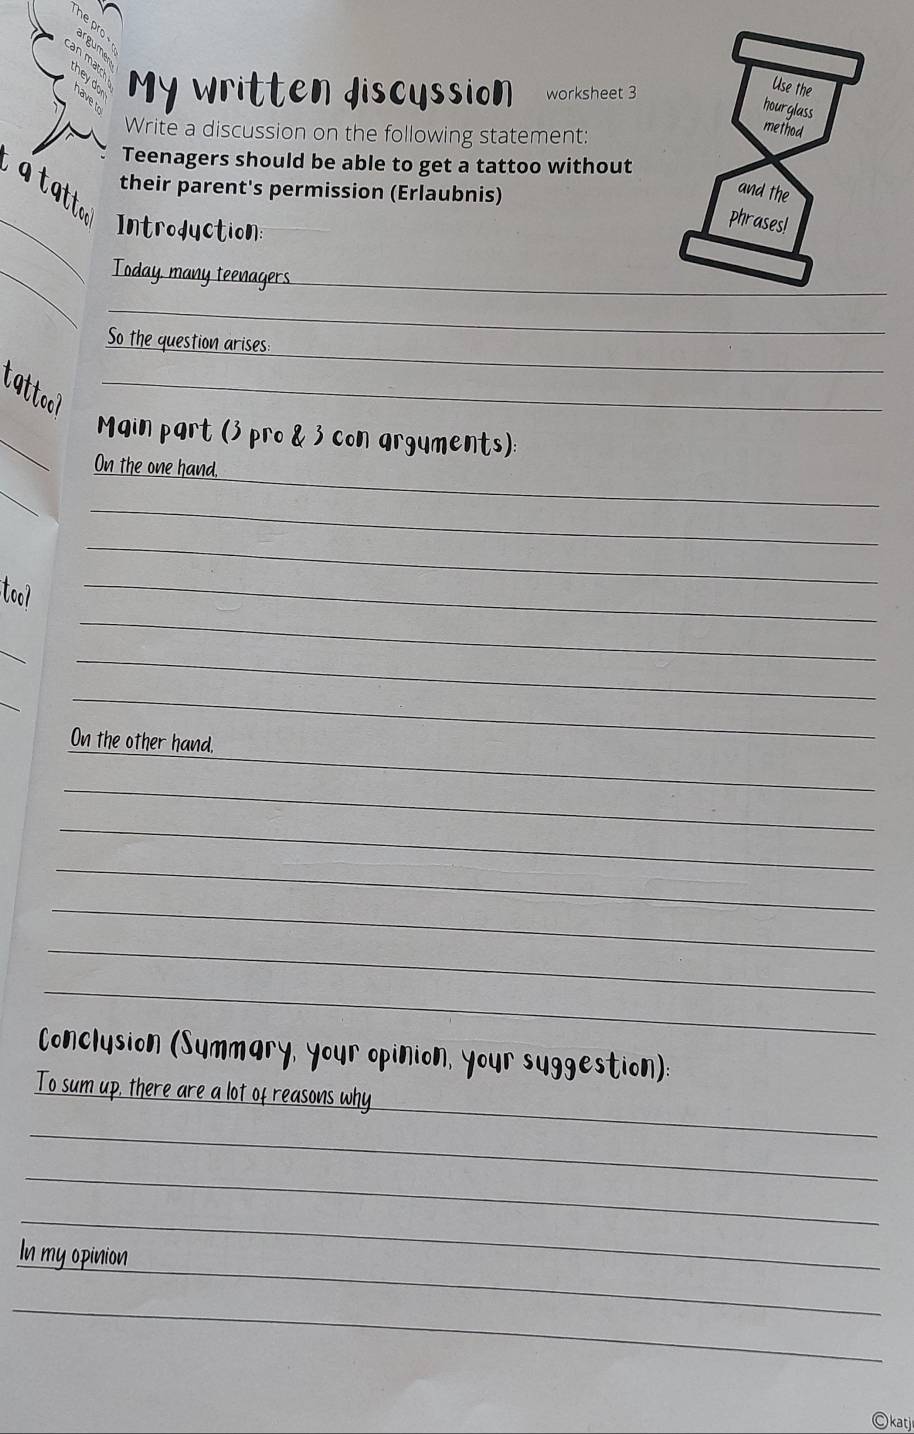 The pro +
can match
they don't
have to!
t a tattoo!
tattoo?
too?
My written discussion
worksheet 3
Write a discussion on the following statement:
Teenagers should be able to get a tattoo without
their parent's permission (Erlaubnis)
Use the
hourglass
method
and the
phrases!
Introduction:
Today, many teenagers
So the question arises:
Main part (3 pro & 3 con arguments):
On the one hand,
On the other hand,
Conclusion (Summary, your opinion, your suggestion):
To sum up, there are a lot of reasons why
In my opinion